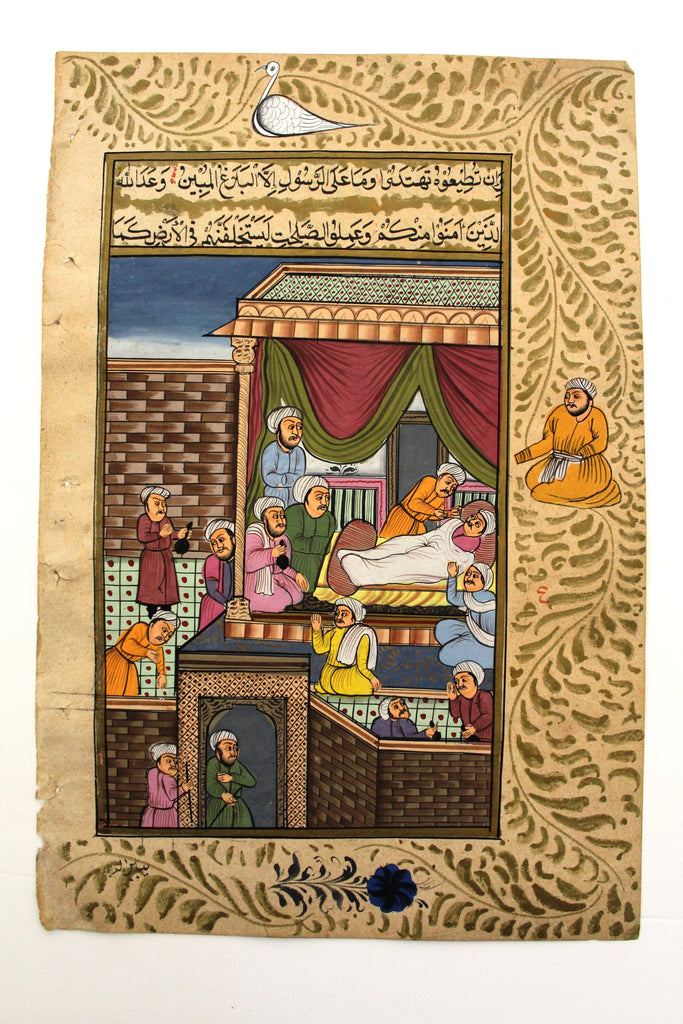 وَاِنْ تُطِيْعُوْهُ تَهْتَدُوْا وَمَا عَلَى الرَّسُوْلِ اِلَّا الْبَلٰغُ الْمُبِيْنُ وَعَدَ اللّٰهُ
الَّذِيْنَ اٰمَنُوْا مِنْكُمْ وَعَمِلُوا الصّٰلِحٰتِ لَيَسْتَخْلِفَنَّهُمْ فِي الْاَرْضِ كَمَا
ع